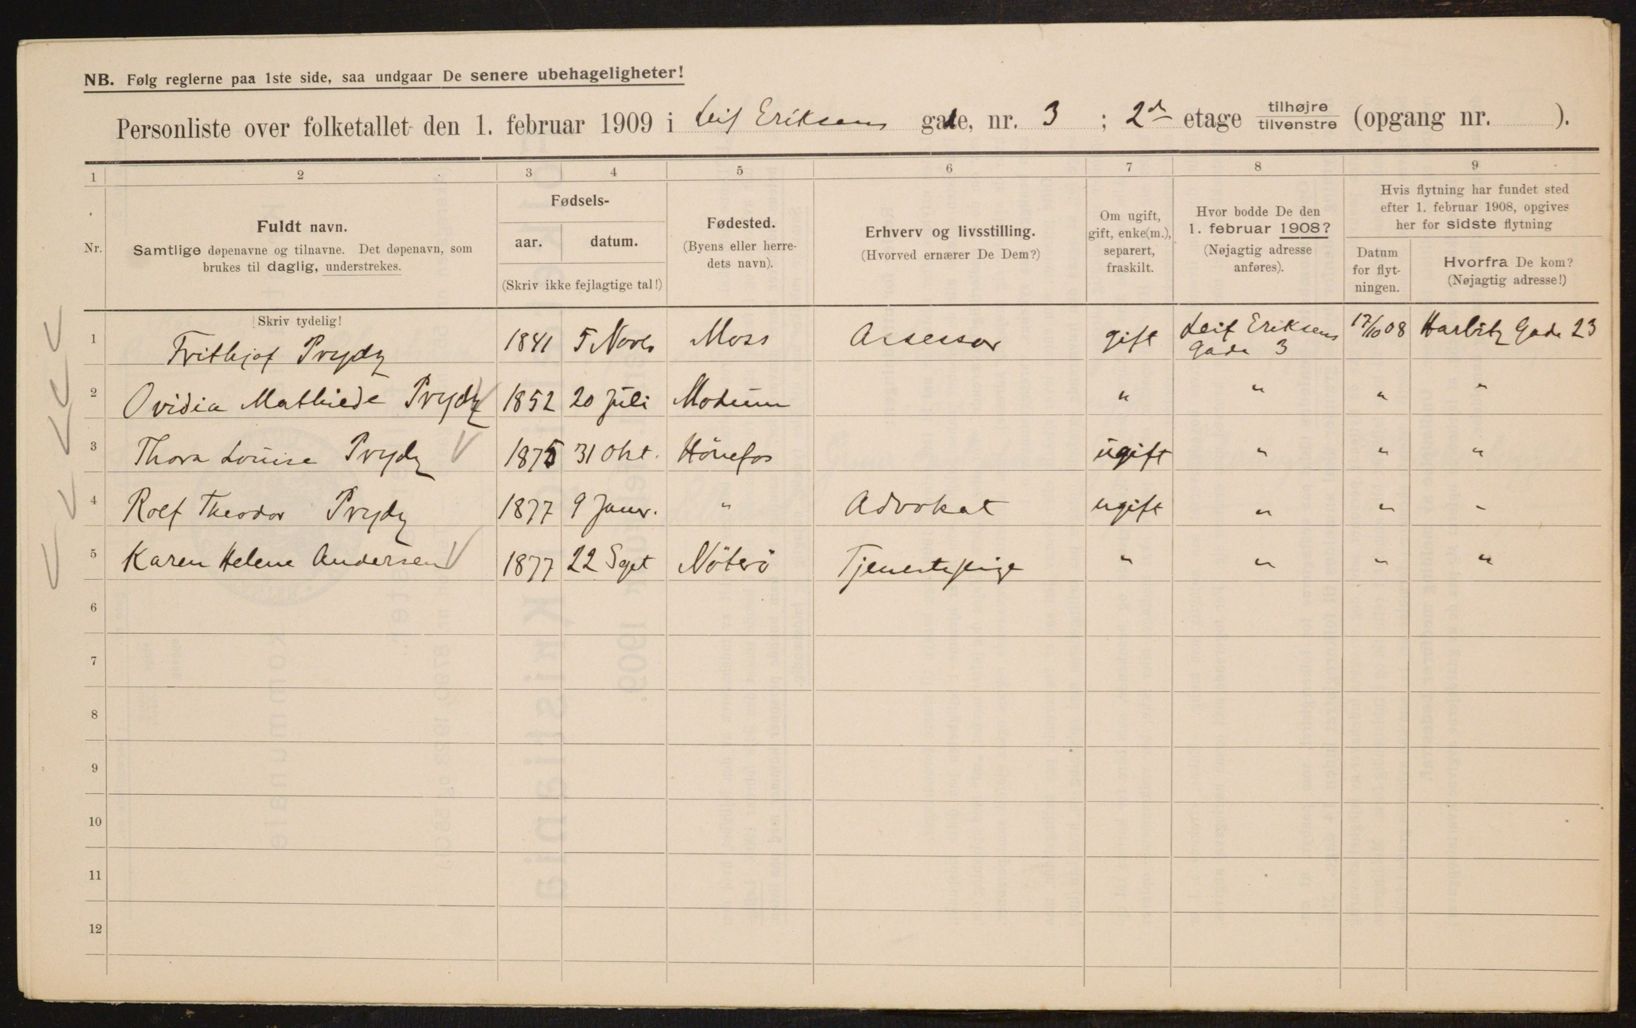 NB. Følg reglerne paa 1ste side, saa undgaar De senere ubehageligheter!
Personliste over folketallet den 1. februar 1909 i Leif Eriksens gade, nr. 3 ; 2den etage tilhøjre tilvenstre (opgang nr. ).
1 2 3 4 5 6 7 8 9
Nr.
Fuldt navn.
Samtlige døpenavne og tilnavne. Det døpenavn, som
brukes til daglig, understrekes.
Fødsels-
aar. datum.
(Skriv ikke fejlagtige tal!)
Fødested.
(Byens eller herre-
dets navn).
Erhverv og livsstilling.
(Hvorved ernærer De Dem?)
Om ugift,
gift, enke(m.),
separert,
fraskilt.
Hvor bodde De den
1. februar 1908?
(Nøjagtig adresse
anføres).
Hvis flytning har fundet sted
efter 1. februar 1908, opgives
her for sidste flytning
Datum
for flyt-
ningen.
Hvorfra De kom?
(Nøjagtig adresse!)
Skriv tydelig!
1 Frithjof Prydz 1841 5 Novb Moss Assessor gift Leif Eriksens Gade 3 17/10 08 Harbitz Gade 23
2 Ovidia Mathilde Prydz 1852 20 Juli Modum " " " "
3 Thora Louise Prydz 1875 31 Okt. Hönefos ugift " " "
4 Rolf Theodor Prydz 1877 9 Janr. " Advokat ugift " " "
5 Karen Helene Andersen 1877 22 Sept Nöterö Tjenestepige " " " "
6
7
8
9
10
11
12